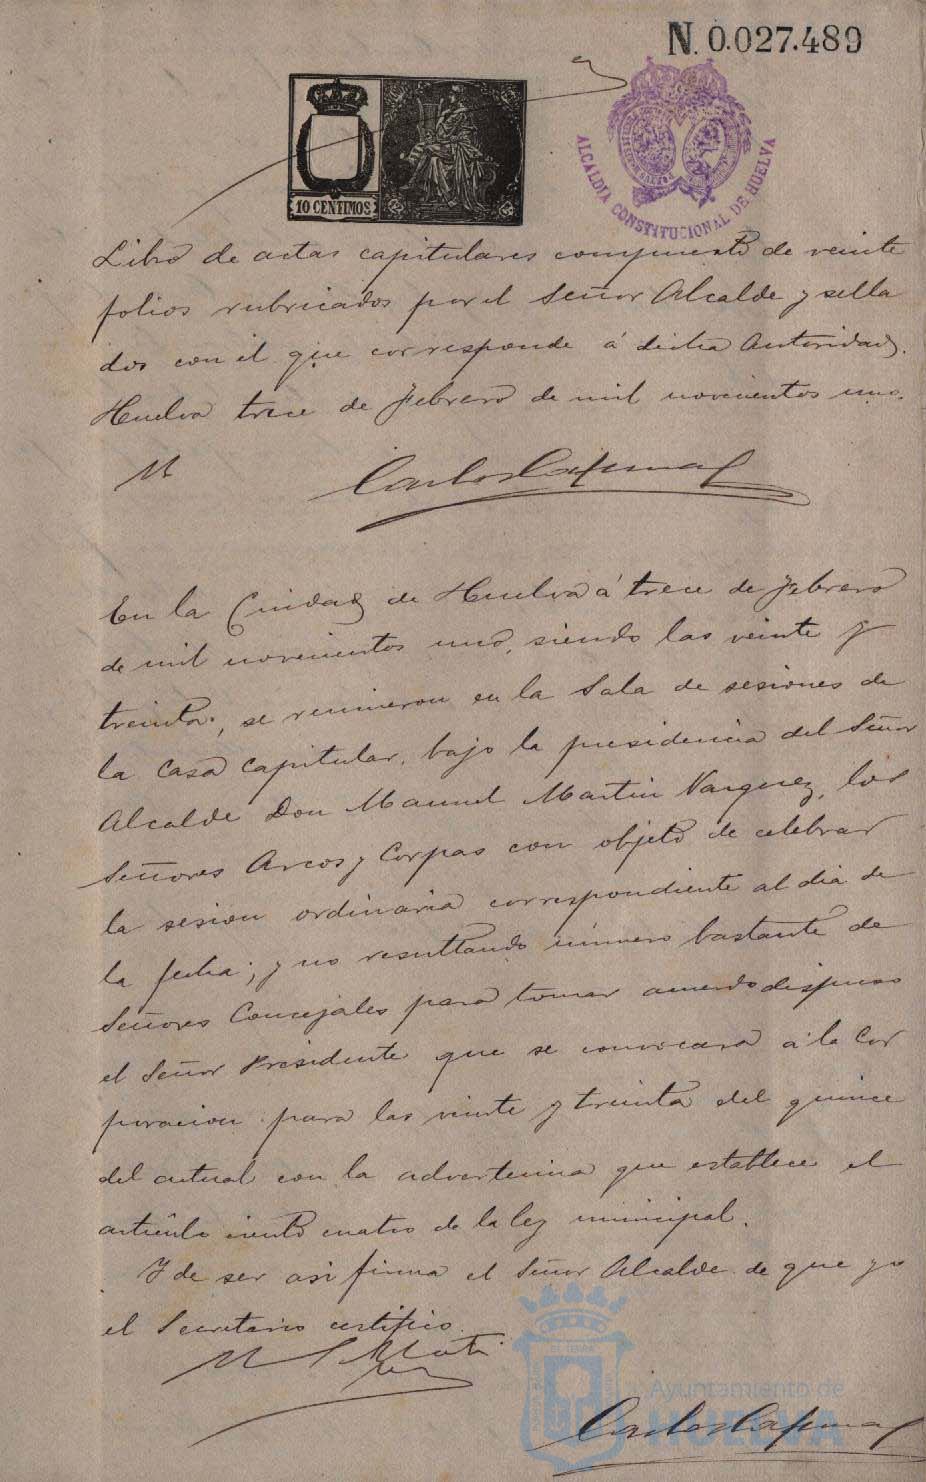 N. 0.027.489
10 CENTIMOS
ALCALDIA CONSTITUCIONAL DE HUELVA
Libro de actas capitulares compuesto de veinte
folios rubricados por el Señor Alcalde y sella
dos con el que corresponde á dicha Autoridad.
Huelva trece de Febrero de mil novecientos uno.
M
En la Ciudad de Huelva á trece de Febrero
de mil novecientos uno, siendo las veinte y
treinta, se reunieron en la Sala de sesiones de
la Casa Capitular, bajo la presidencia del Señor
Alcalde Don Manuel Martin Vazquez, los
Señores Arcos y Corpas con objeto de celebrar
la sesion ordinaria correspondiente al dia de
la fecha; y no resultando número bastante de
Señores Concejales para tomar acuerdo dispuso
el Señor Presidente que se convocara á la Cor
poracion para las veinte y treinta del quince
del actual con la advertencia que establece el
artículo ciento cuatro de la ley municipal.
Y de ser asi firma el Señor Alcalde de que yo
el Secretario certifico.
Ayuntamiento de
HUELVA